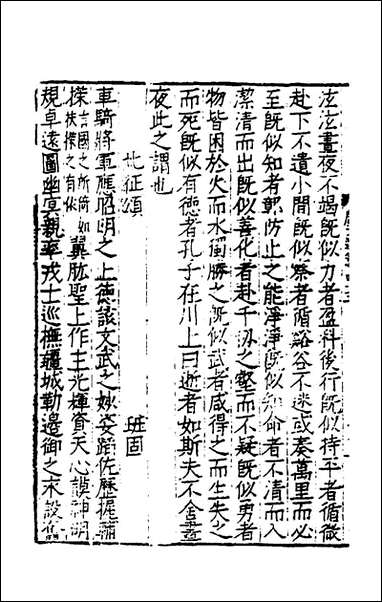 泫泫晝夜不竭既似力者盈科後行既似持平者循微
赴下不遺小間既似察者循谿谷不迷或奏萬里而必
至既似知者鄣防止之能淨淨既似知命者不清而入
潔清而出既似善化者赴千仞之壑而不疑既似勇者
物皆困於火而水獨勝之既似武者咸得之而生失之
而死既似有德者孔子在川上曰逝者如斯夫不舍晝
夜此之謂也
北征頌 班固
車騎將軍應昭明之上德該文武之妙姿蹈佐歷握輔
揲言國之所倚如扶揲之有依翼肱聖上作主光輝資天心謨神明
規卓遠圖幽冥親率戎士巡撫疆城勒邊御之永設